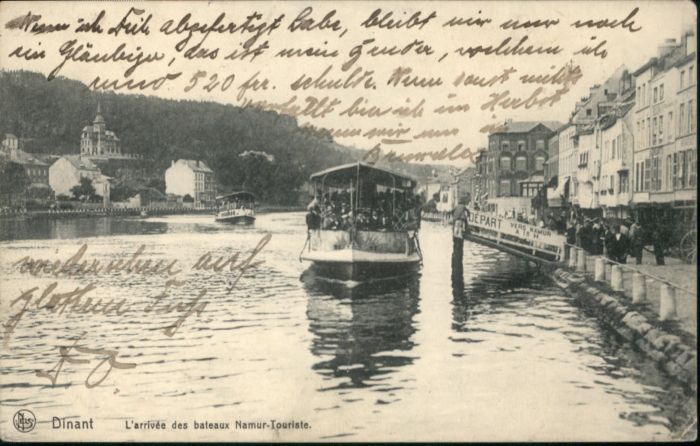 Wenn ich Dich abgefertigt habe, bleibt mir nur noch
ein Gläubiger, das ist mein Bruder, welchem ich
rund 520 frc. schulde. Wenn sonst nichts
vorfällt bin ich im Herbst
wenn wir uns in
wiedersehen auf
glothem Fuß
DÉPART VERS NAMUR
Dinant L'arrivée des bateaux Namur-Touriste.